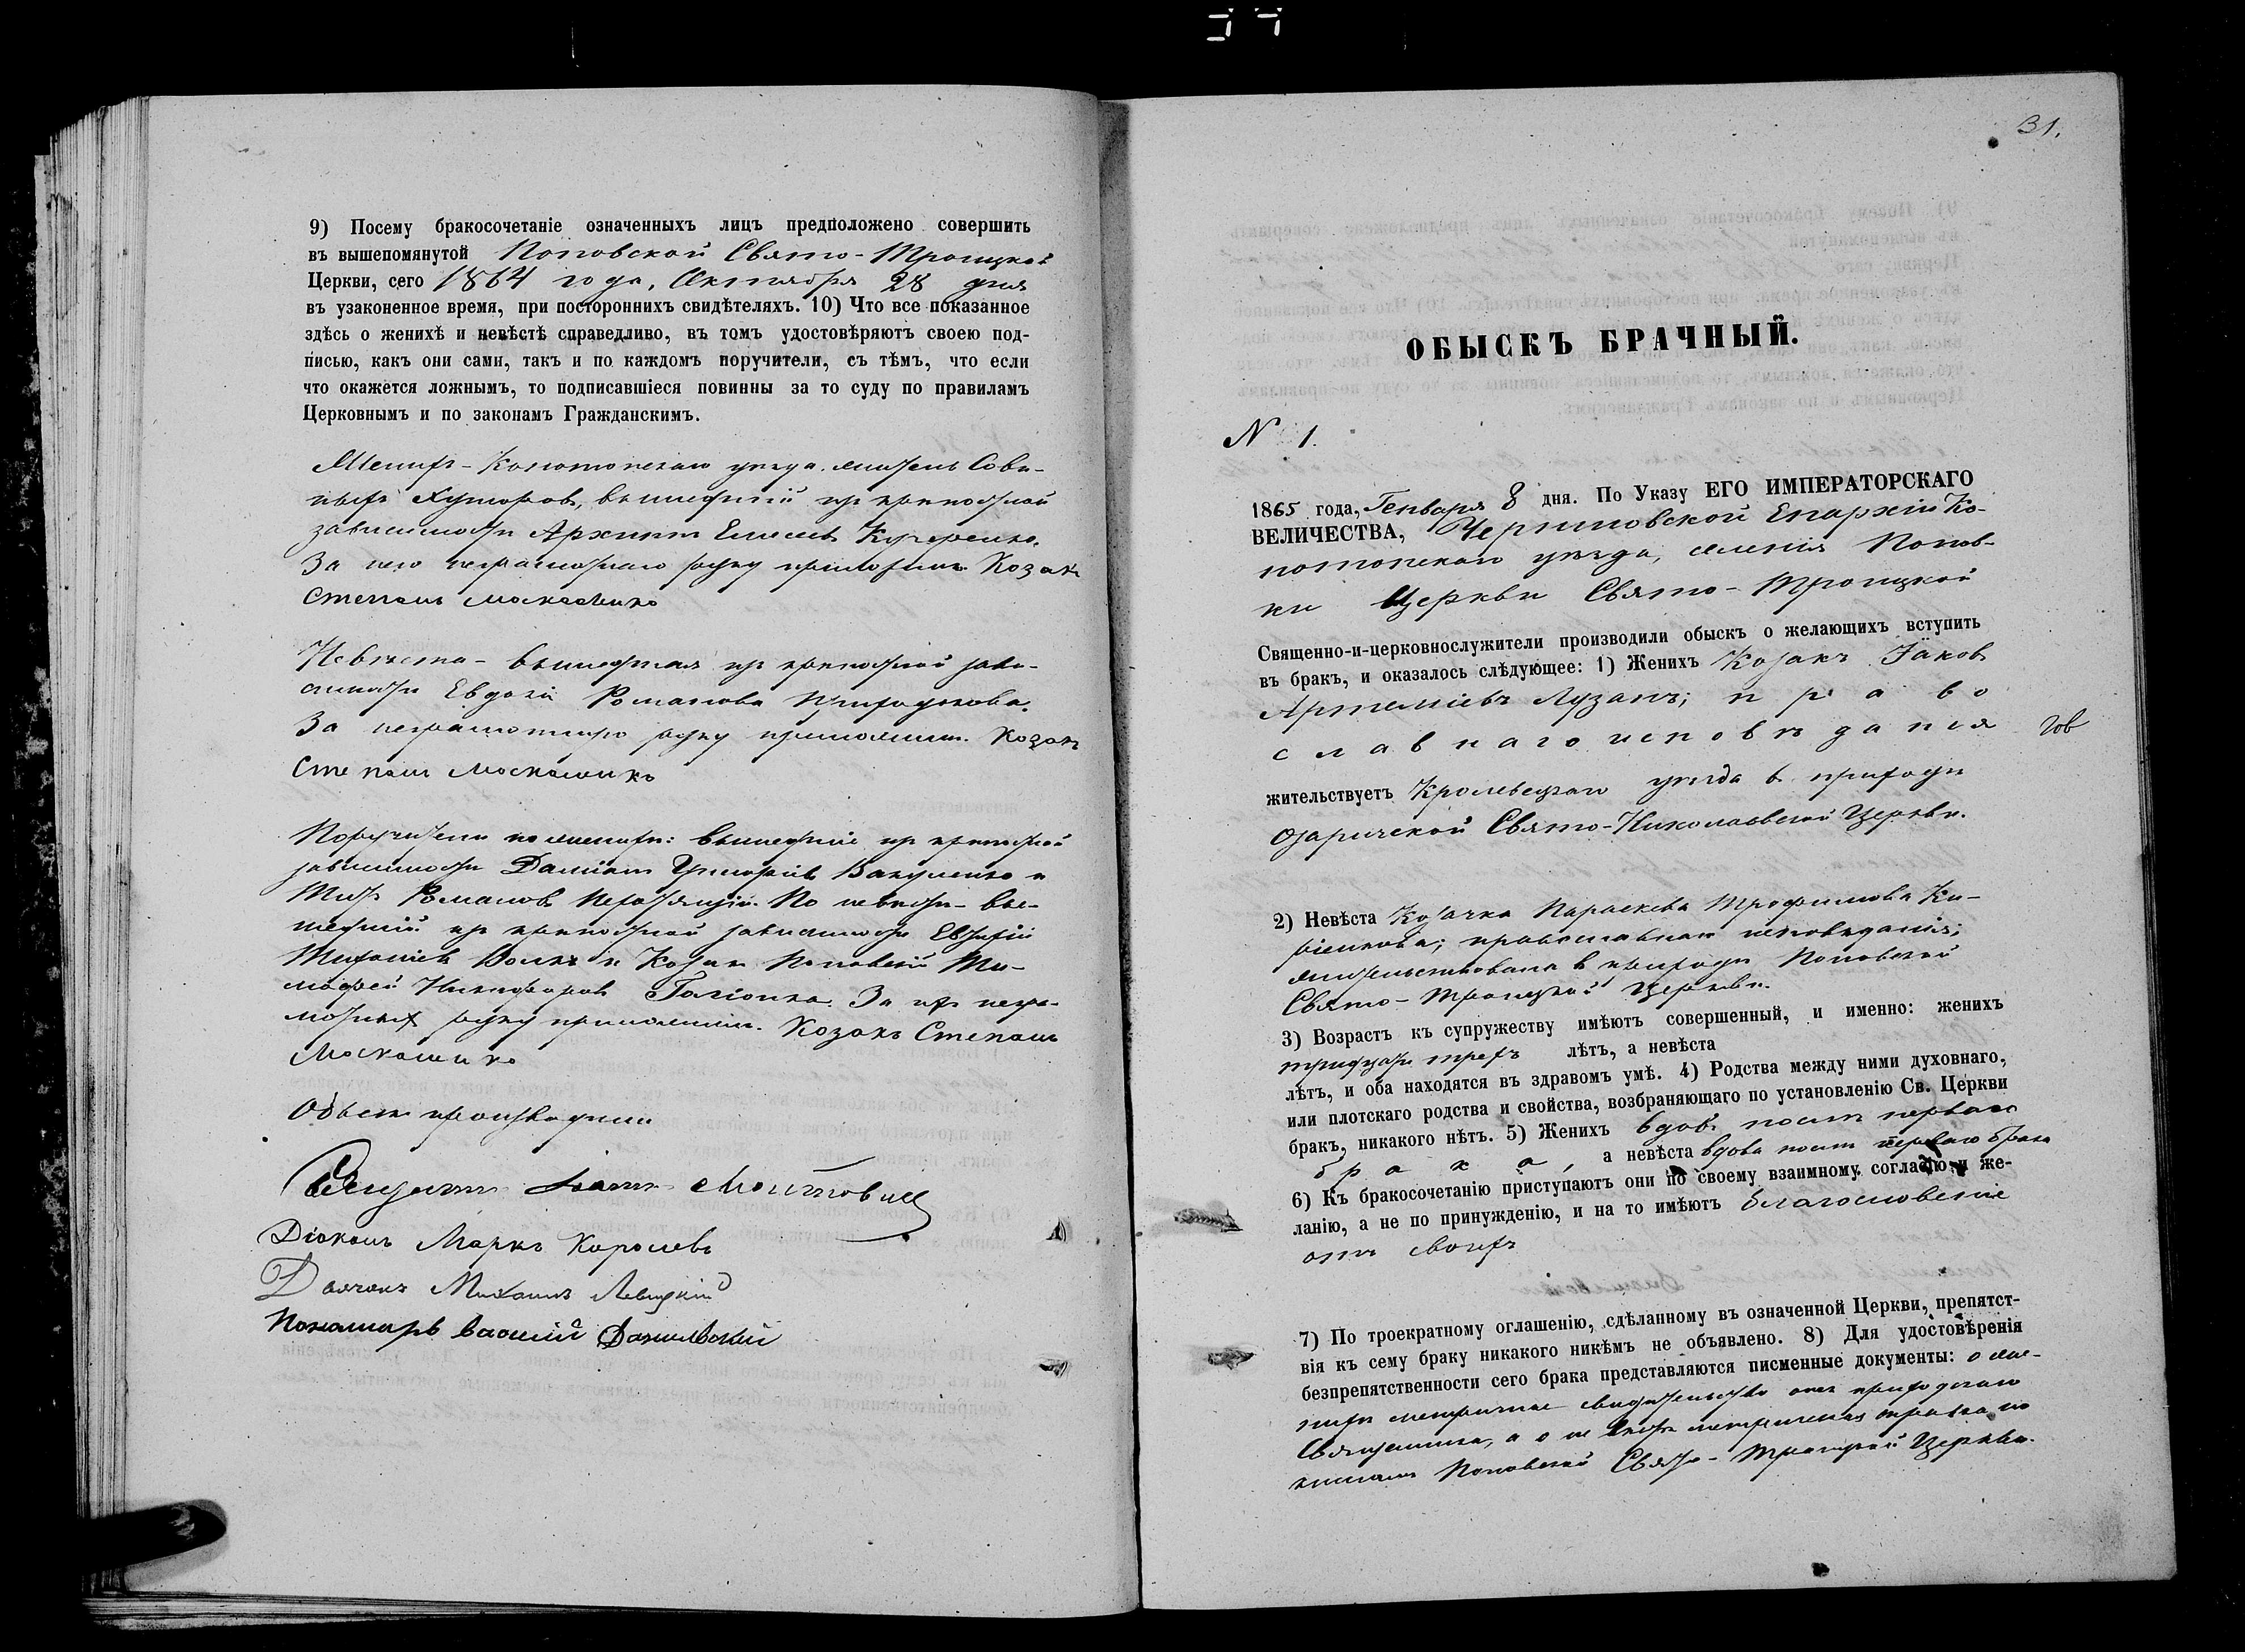 9) Посему бракосочетаніе означенныхъ лицъ предположено совершить
въ вышепомянутой Поповской Свято-Троицкой
Церкви, сего 1864 года, Октября 28 дня
въ узаконенное время, при постороннихъ свидѣтеляхъ. 10) Что все показанное
здѣсь о женихѣ и невѣстѣ справедливо, въ томъ удостовѣряютъ своею под-
писью, какъ они сами, такъ и по каждомъ поручители, съ тѣмъ, что если
что окажется ложнымъ, то подписавшіеся повинны за то суду по правиламъ
Церковнымъ и по законамъ Гражданскимъ.
Женихъ - Конотопскаго уѣзда, житель
Хуторовъ, вышедшій изъ крѣпостной
зависимости Архипъ
За него неграмотнаго руку приложилъ Козакъ
Степанъ Москаленко
Невѣста - вышедшая изъ крѣпостной зави-
симости Евдокія Романова
За неграмотную руку приложилъ Козакъ
Степанъ Москаленко
Поручители по женихѣ: вышедшіе изъ крѣпостной
зависимости Даміанъ Григоріевъ Вакуленко и
Титъ Романовъ По невѣстѣ - вы-
шедшій изъ крѣпостной зависимости
Волкъ и Козакъ Поповскій Ти-
мофей Никифоровъ За ихъ негра-
мотныхъ руку приложилъ Козакъ Степанъ
Москаленко
Обыскъ производили
Священникъ
Діаконъ Маркъ Королевъ
Дьячокъ Михаилъ Левицкій
Пономарь Василій
31.
ОБЫСКЪ БРАЧНЫЙ.
N 1.
1865 года, Генваря 8 дня. По Указу ЕГО ИМПЕРАТОРСКАГО
ВЕЛИЧЕСТВА, Черниговской Епархіи Ко-
нотопскаго уѣзда, селенія Попов-
ки Церкви Свято-Троицкой
Священно-и-церковнослужители производили обыскъ о желающихъ вступить
въ бракъ, и оказалось слѣдующее: 1) Женихъ Козакъ Іаковъ
Артеміевъ Лузанъ; право
славнаго исповѣданія
жительствуетъ Кролевецкаго уѣзда в приходѣ
Озаричской Свято-Николаевской Церкви.
2) Невѣста Козачка Параскева Трофимова Ки-
; православнаго исповѣданія;
жительствовала в приходѣ Поповской
Свято-Троицкой Церкви.
3) Возрастъ къ супружеству имѣютъ совершенный, и именно: женихъ
тридцати трехъ лѣтъ, а невѣста
лѣтъ, и оба находятся въ здравомъ умѣ. 4) Родства между ними духовнаго,
или плотскаго родства и свойства, возбраняющаго по установленію Св. Церкви
бракъ, никакого нѣтъ. 5) Женихъ вдовъ послѣ перваго
брака, а невѣста вдова послѣ перваго брака
6) Къ бракосочетанію приступаютъ они по своему взаимному согласію и же-
ланію, а не по принужденію, и на то имѣютъ благословеніе
отъ своихъ
7) По троекратному оглашенію, сдѣланному въ означенной Церкви, препятст-
вія къ сему браку никакого никѣмъ не объявлено. 8) Для удостовѣренія
безпрепятственности сего брака представляются писменные документы: о же-
нихѣ метричное свидѣтельство отъ приходскаго
Священника, а о невѣстѣ метрическая справка по
книгамъ Поповской Свято-Троицкой Церкви.